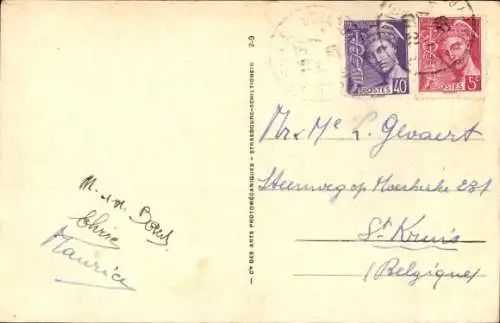 POSTES 40c
POSTES 5c
Mr & Me L. Gevaert
Steenweg op Moerkerke 231
St Kruis
(Belgique)
Chris
Maurice
— Cie DES ARTS PHOTOMÉCANIQUES — STRASBOURG-SCHILTIGHEIM — 2-9